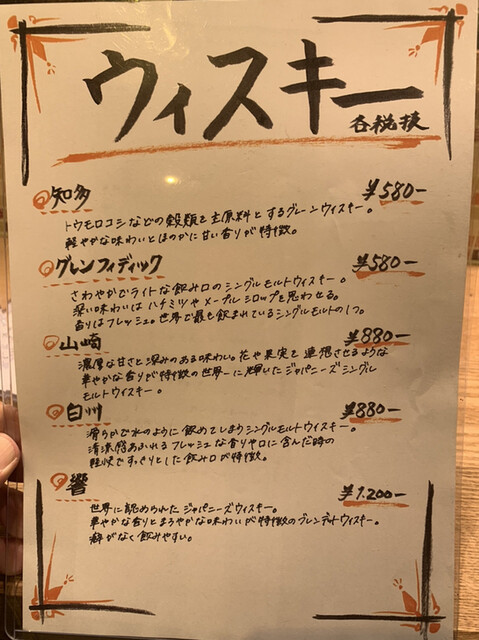 ウィスキー
各税抜
知多 ¥580-
トウモロコシなどの穀類を主原料とするグレーンウィスキー。
軽やかな味わいとほのかに甘い香りが特徴。
グレンフィディック ¥580-
さわやかでライトな飲み口のシングルモルトウィスキー。
深い味わいはハチミツやメープルシロップを思わせる。
香りはフレッシュ。世界で最も飲まれているシングルモルトの1つ。
山崎 ¥880-
濃厚な甘さと深みのある味わい。花や果実を連想させるような
華やかな香りが特徴の世界一に輝いたジャパニーズシングル
モルトウィスキー。
白州 ¥880-
滑らかで水のように飲めてしまうシングルモルトウィスキー。
清涼感あふれるフレッシュな香りや口に含んだ時の
軽快ですっきりとした飲み口が特徴。
響 ¥1.200-
世界に認められたジャパニーズウィスキー。
華やかな香りとまろやかな味わいが特徴のブレンデットウィスキー。
癖がなく飲みやすい。